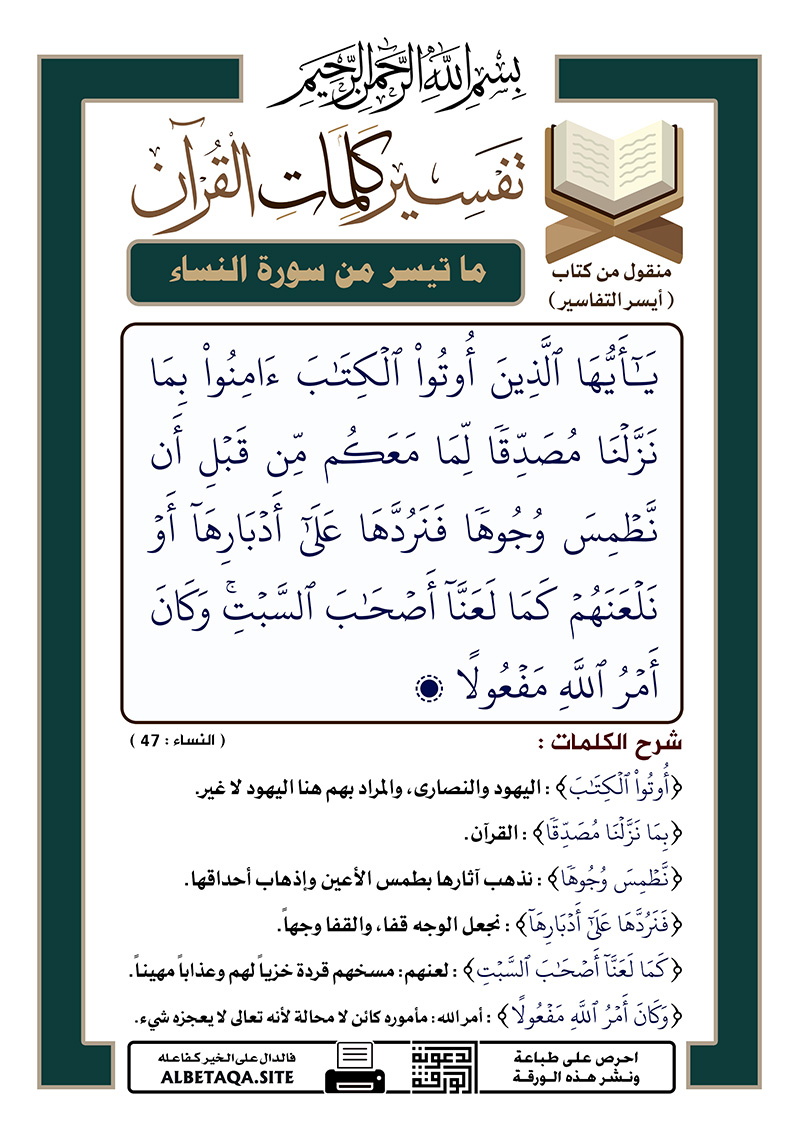 بِسْمِ اللَّهِ الرَّحْمَٰنِ الرَّحِيمِ
تَفْسِير كَلِمَاتِ القُرْآن
ما تيسر من سورة النساء
منقول من كتاب
( أيسر التفاسير )
يَـٰٓأَيُّهَا ٱلَّذِينَ أُوتُوا۟ ٱلْكِتَـٰبَ ءَامِنُوا۟ بِمَا
نَزَّلْنَا مُصَدِّقًا لِّمَا مَعَكُم مِّن قَبْلِ أَن
نَّطْمِسَ وُجُوهًا فَنَرُدَّهَا عَلَىٰٓ أَدْبَارِهَآ أَوْ
نَلْعَنَهُمْ كَمَا لَعَنَّآ أَصْحَـٰبَ ٱلسَّبْتِ ۚ وَكَانَ
أَمْرُ ٱللَّهِ مَفْعُولًا
شرح الكلمات :
( النساء : 47 )
﴿أُوتُوا۟ ٱلْكِتَـٰبَ﴾ : اليهود والنصارى، والمراد بهم هنا اليهود لا غير.
﴿بِمَا نَزَّلْنَا مُصَدِّقًا﴾ : القرآن.
﴿نَّطْمِسَ وُجُوهًا﴾ : نذهب آثارها بطمس الأعين وإذهاب أحداقها.
﴿فَنَرُدَّهَا عَلَىٰٓ أَدْبَارِهَآ﴾ : نجعل الوجه قفا، والقفا وجهاً.
﴿كَمَا لَعَنَّآ أَصْحَـٰبَ ٱلسَّبْتِ﴾ : لعنهم: مسخهم قردة خزياً لهم وعذاباً مهيناً.
﴿وَكَانَ أَمْرُ ٱللَّهِ مَفْعُولًا﴾ : أمر الله: مأموره كائن لا محالة لأنه تعالى لا يعجزه شيء.
احرص على طباعة
ونشر هذه الورقة
الورقة الدعوية
فالدال على الخير كفاعله
ALBETAQA.SITE